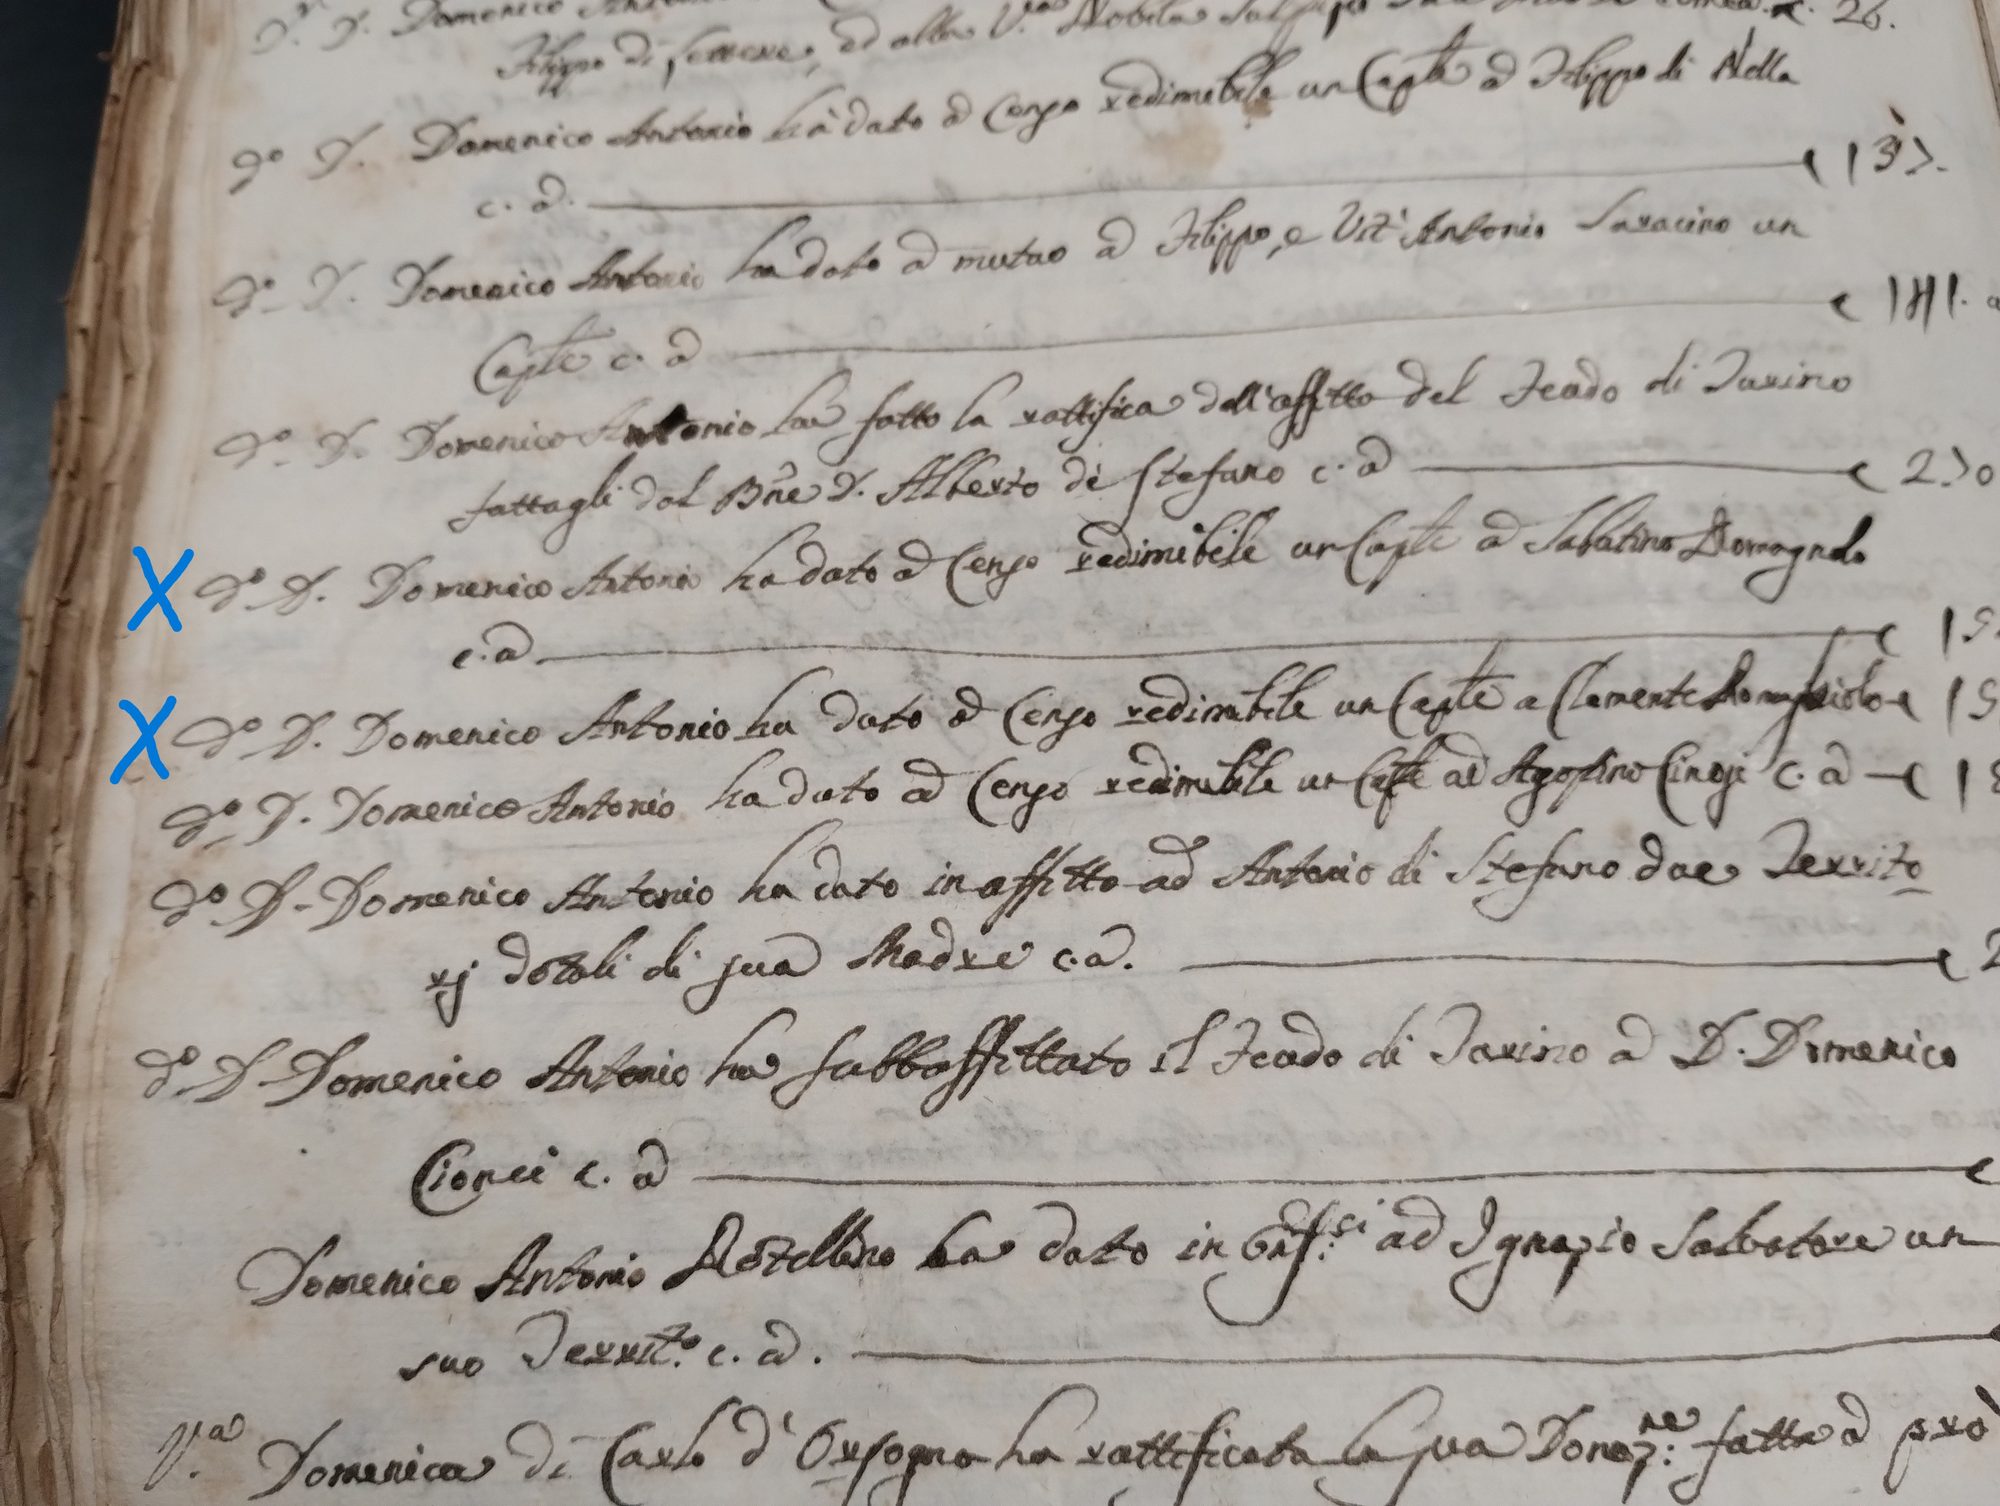 D. Domenico Antonio
Filippo di Lettere, ed alla V.a Nobile sua c. 26.
d.o D. Domenico Antonio hà dato à Censo redimibile un Cap.le à Filippo di Nella
c. à. 137.
d.o D. Domenico Antonio ha dato à mutuo à Filippo, e Vit'Antonio Saracino un
Cap.le c. à 141.
d.o D. Domenico Antonio ha fatto la rattifica dell'affitto del Feudo di Tavino
fattagli dal Bñe D. Alberto di Stefano c. à 270
X d.o D. Domenico Antonio ha dato à Censo redimibile un Cap.le à Sabatino Romagnolo
c. à 15
X d.o D. Domenico Antonio ha dato à Censo redimibile un Cap.le a Clemente Romagniolo 15
d.o D. Domenico Antonio ha dato à Censo redimibile un Cap.le ad Agostino Cingi c. à 1
d.o D. Domenico Antonio ha dato in affitto ad Antonio di Stefano due Territo
rj dotali di sua Madre c. à. 2
d.o D. Domenico Antonio ha subbaffittato il Feudo di Tavino à D. Domenico
Cionci c. à
Domenico Antonio Rostellino ha dato in Enf.si ad Ignazio Salvatore un
suo Territ.o c. à.
V.a Domenica di Carlo d'Orsogna ha rattificata la sua Donaz.ne fatta à prò